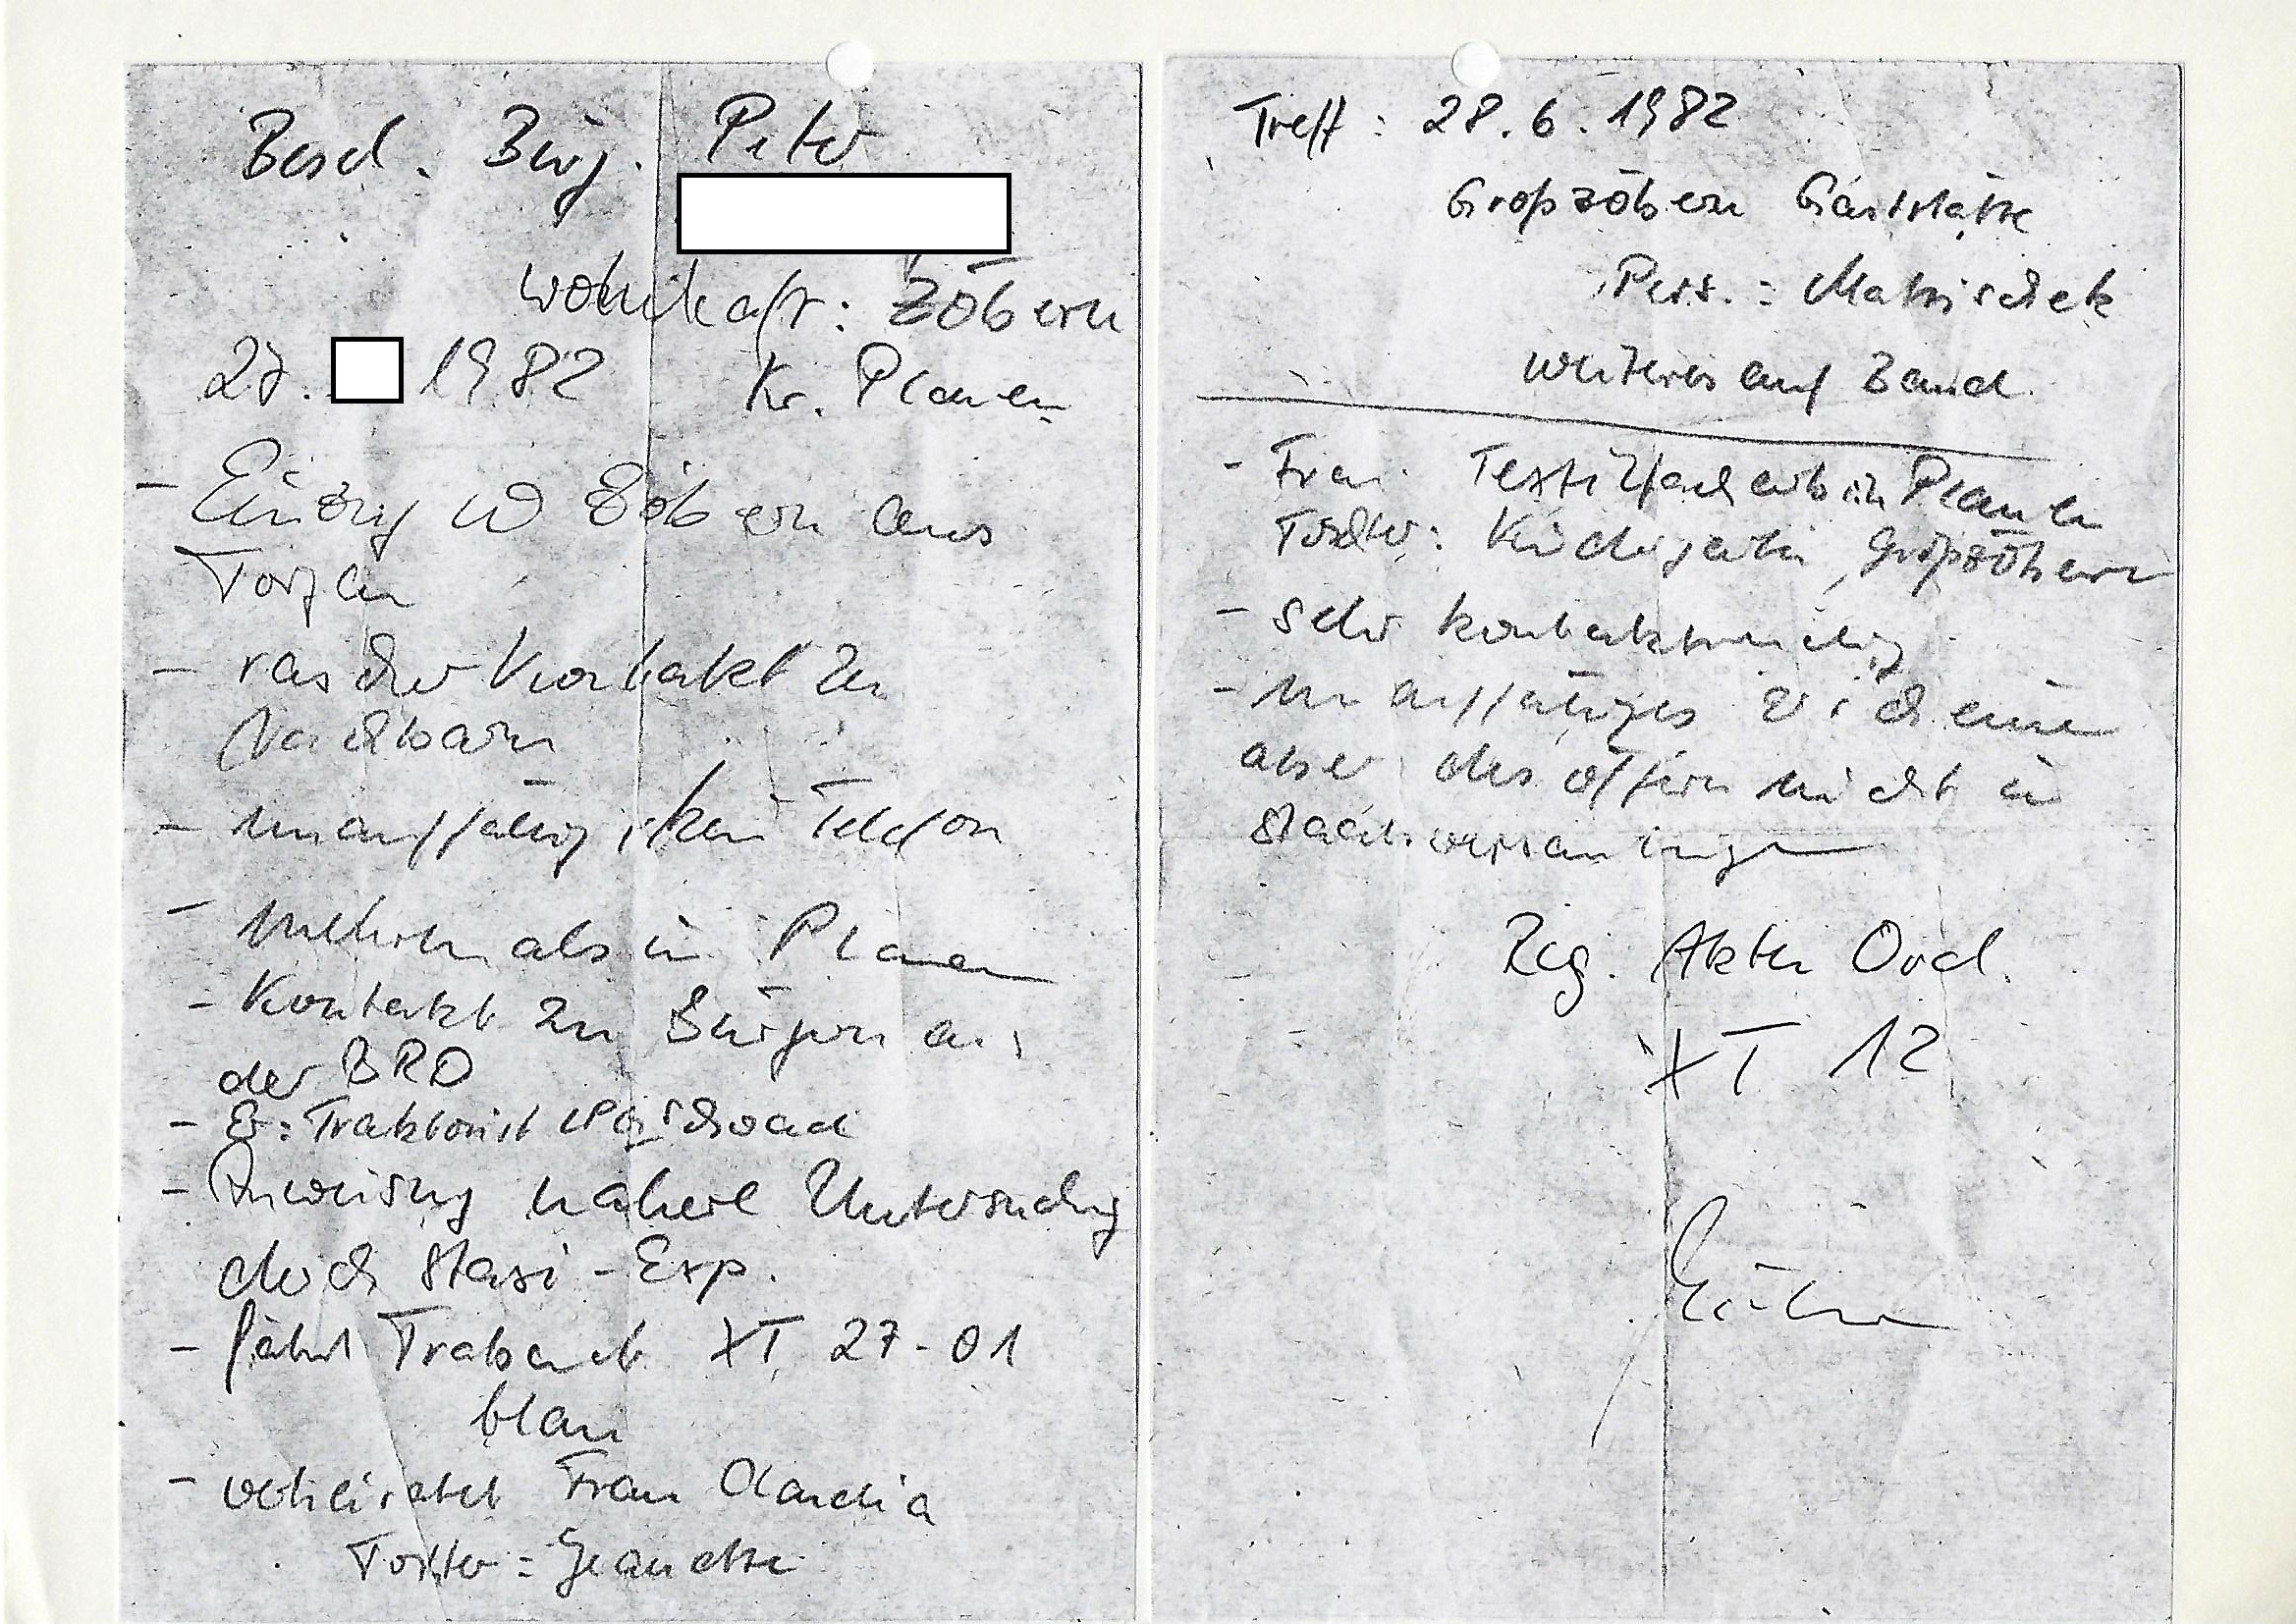 Besch. Bürg. Peter
wohnhaft: Zöbern
27. 1982 Kr. Plauen
- Einzug in Zöbern aus
Torgau
- rascher Kontakt zu
Nachbarn
- unauffällig, kein Telefon
- mehrmals in Plauen
- Kontakt zu Bürgern aus
der BRD
- Er: Traktorist LPG
- Anweisung nähere Untersuchung
durch Stasi-Exp.
- fährt Trabant XT 27-01
blau
- verheiratet Frau Claudia
Tochter:
Treff: 28.6.1982
Großzöbern Gaststätte
Pers.:
weiteres auf Band
- Frau: Textilfacharb. in Plauen
Tochter: Kindergarten, Großzöbern
- sehr kontaktfreudig
- unauffälliges Erscheinen
aber des öftern nicht in
Reg. Akten Ord.
XT 12